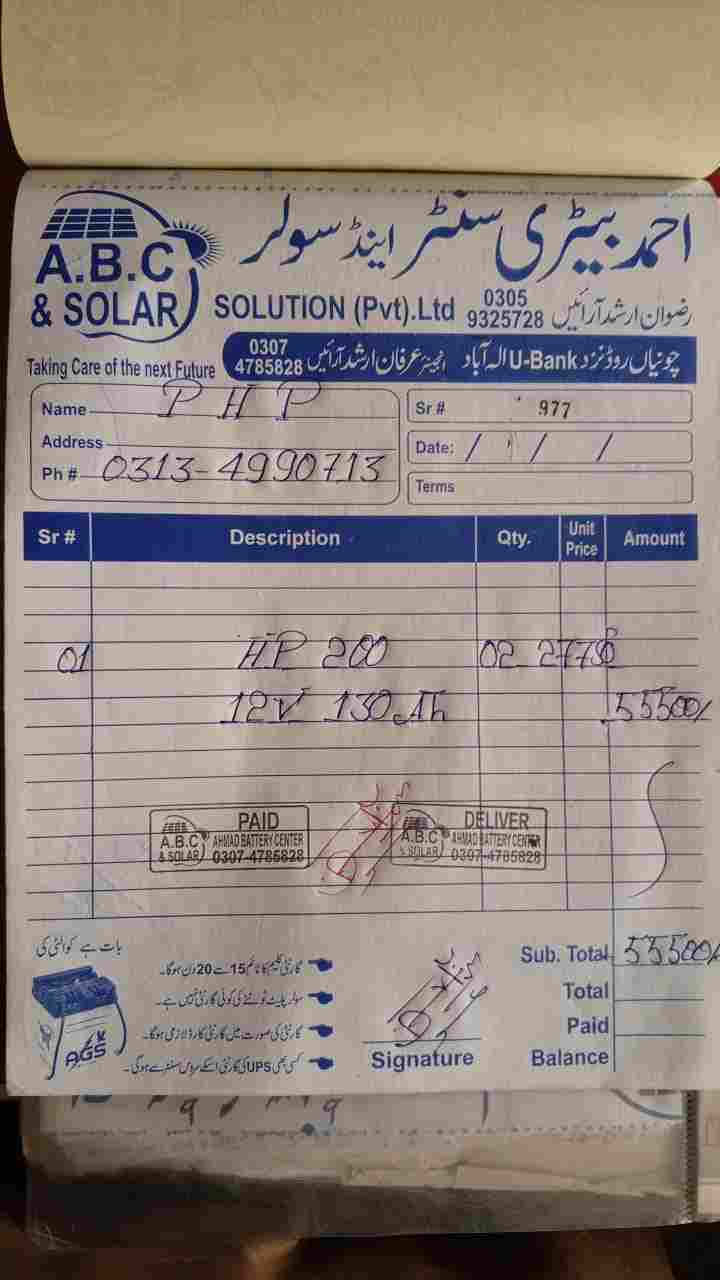 احمد بیٹری سنٹر اینڈ سولر
A.B.C
& SOLAR
SOLUTION (Pvt).Ltd
0305
9325728
رضوان ارشد آرائیں
Taking Care of the next Future
0307
4785828
انجینئر عرفان ارشد آرائیں
چونیاں روڈ نزد U-Bank الہ آباد
Name P H P
Address
Ph # 0313-4990713
Sr # 977
Date: / / /
Terms
Sr # Description Qty. Unit Price Amount
01 HP 200 02 27750
12V 130 Ah 55500/
PAID
A.B.C AHMAD BATTERY CENTER
& SOLAR 0307-4785828
DELIVER
A.B.C AHMAD BATTERY CENTER
& SOLAR 0307-4785828
بات ہے کوالٹی کی
AGS
گارنٹی کلیم کا ٹائم 15 سے 20 دن ہوگا۔
سولر پلیٹ ٹوٹنے کی کوئی گارنٹی نہیں ہے۔
گارنٹی کی صورت میں گارنٹی کارڈ لازمی ہوگا۔
کسی بھی UPS کی گارنٹی اسکے سروس سنٹر سے ہوگی۔
Signature
Sub. Total 55500/
Total
Paid
Balance